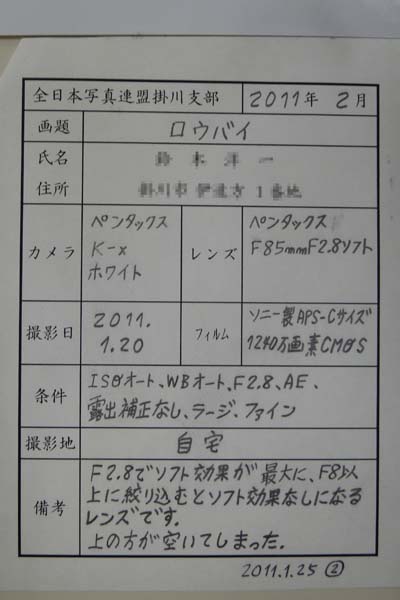 全日本写真連盟掛川支部 2011年 2月
画題 ロウバイ
氏名
住所
カメラ ペンタックス K-x ホワイト
レンズ ペンタックス F85mmF2.8ソフト
撮影日 2011. 1.20
フィルム ソニー製APS-Cサイズ 1240万画素CMOS
条件 ISOオート、WBオート、F2.8、AE、
露出補正なし、ラージ、ファイン
撮影地 自宅
備考 F2.8でソフト効果が最大に、F8以
上に絞り込むとソフト効果なしになる
レンズです.
上の方が空いてしまった.
2011.1.25 ②